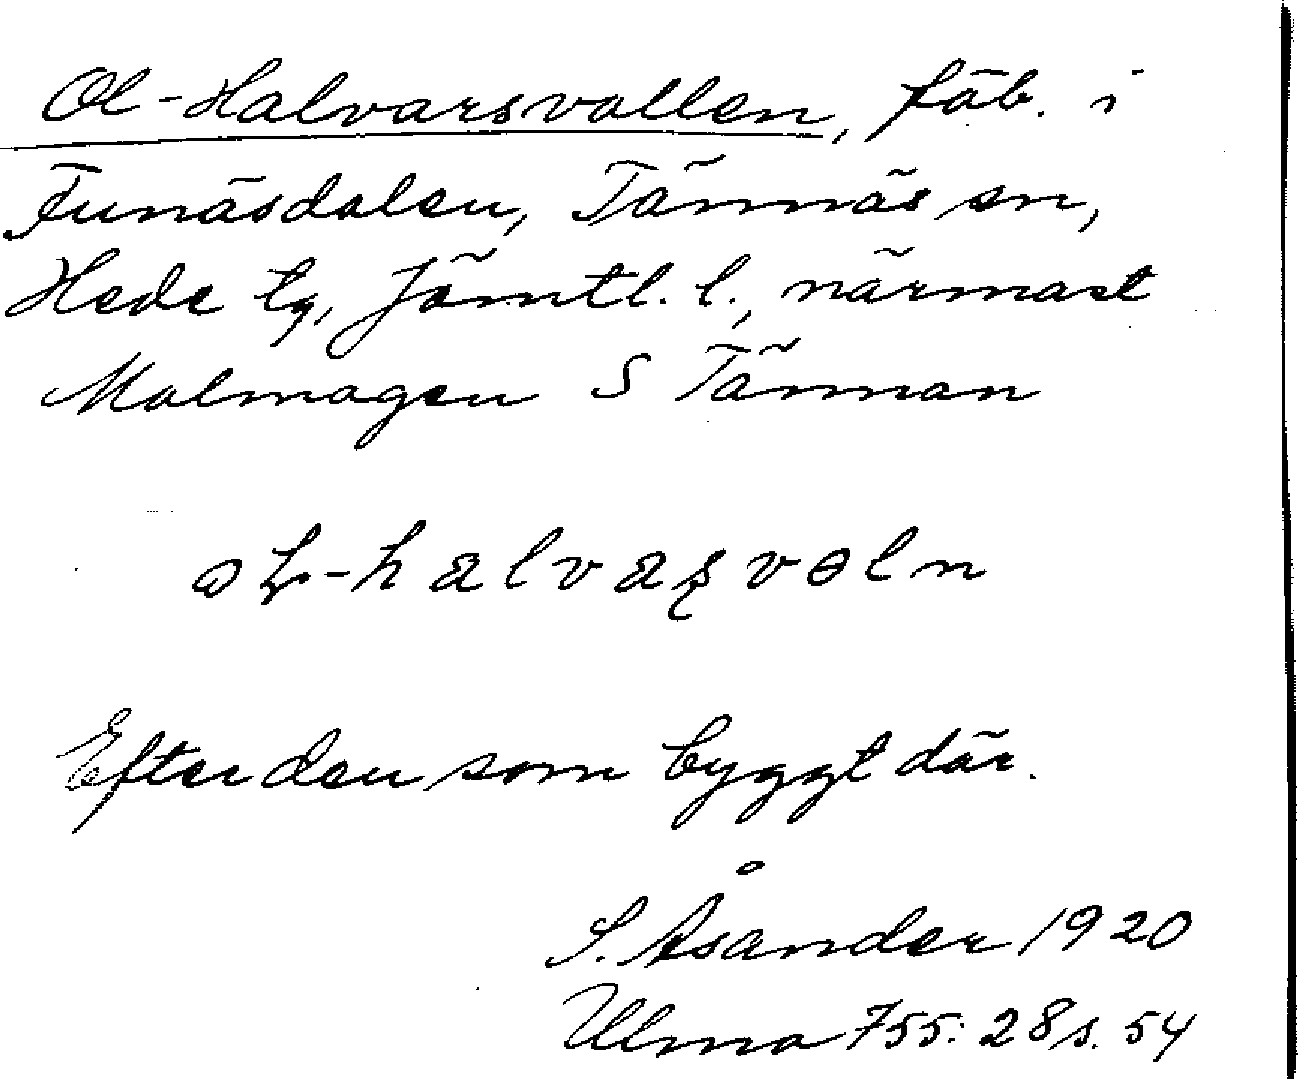 Ol-Halvarsvallen, fäb. i
Funäsdalen, Tännäs sn,
Hede tg, Jämtl. l., närmast
Malmagen S Tännan
-halvaʂvɵln
Efter den som byggt där.
S. Åsander 1920
Ulma 755:28 s. 54